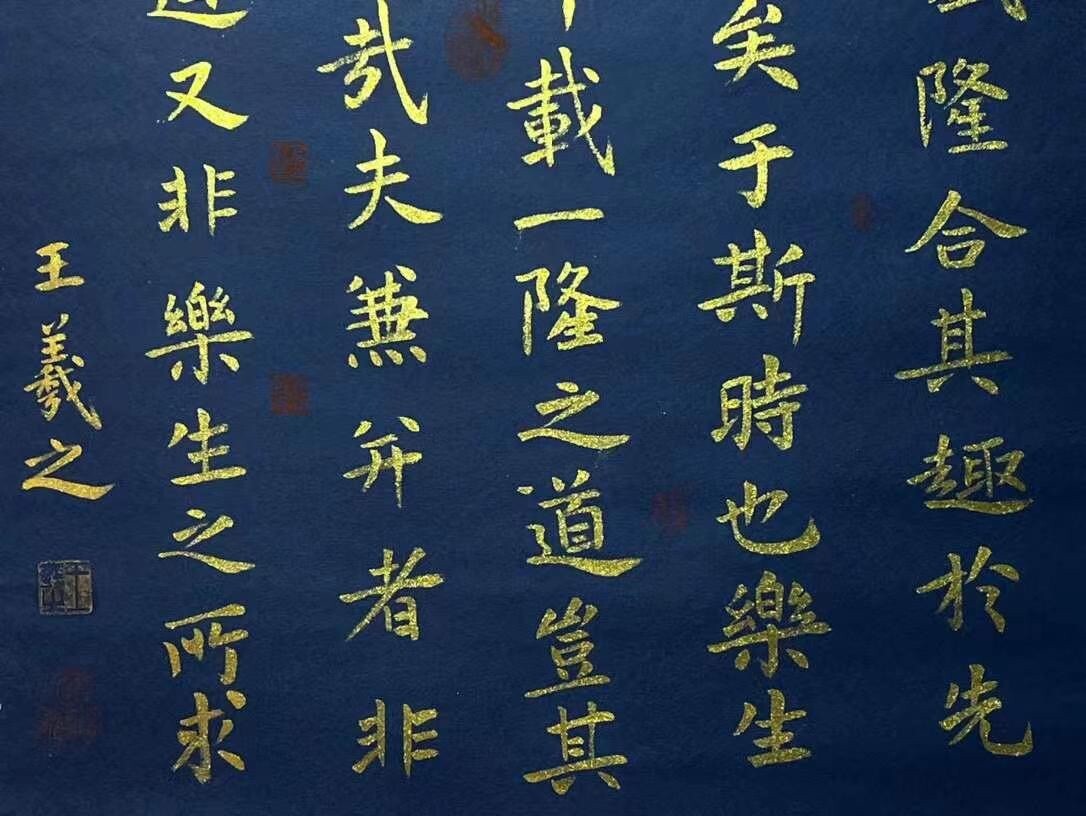 隆合其趣於先
矣于斯時也樂生
載一隆之道豈其
哉夫兼并者非
又非樂生之所求
王羲之